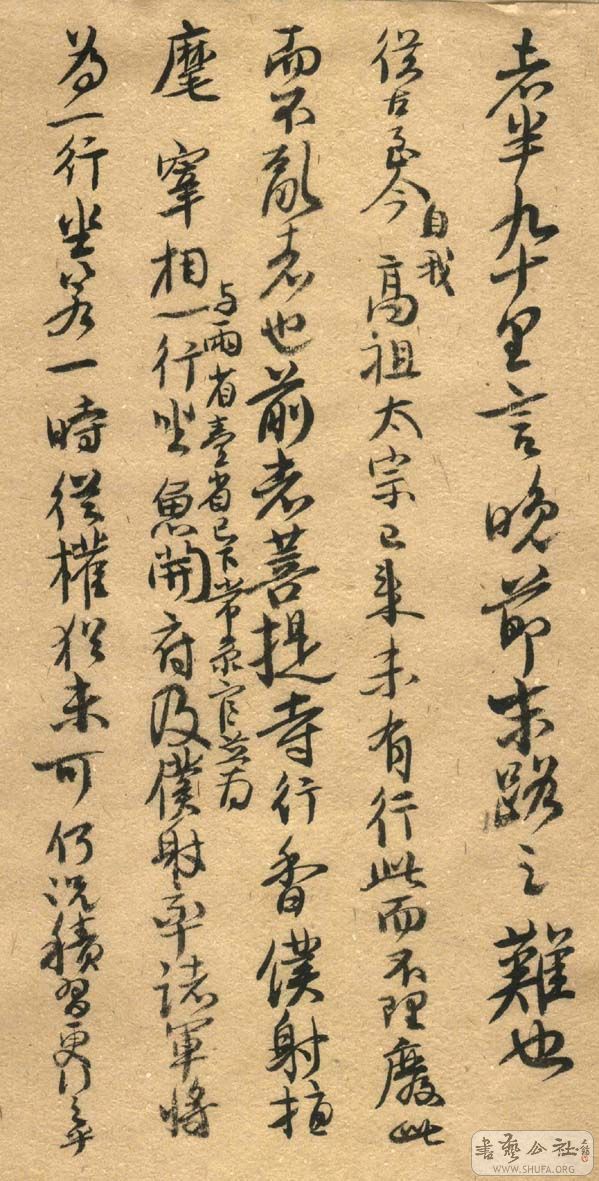 者半九十里言晚節末路之難也
從古至今自我高祖太宗已来未有行此而不理廢此
而不亂者也前者菩提寺行香僕射指
麾宰相与兩省臺省已下常參官並為一行坐魚開府及僕射率諸軍將
為一行坐若一時從權猶未可何況積習更行之乎
書藝公社
WWW.SHUFA.ORG